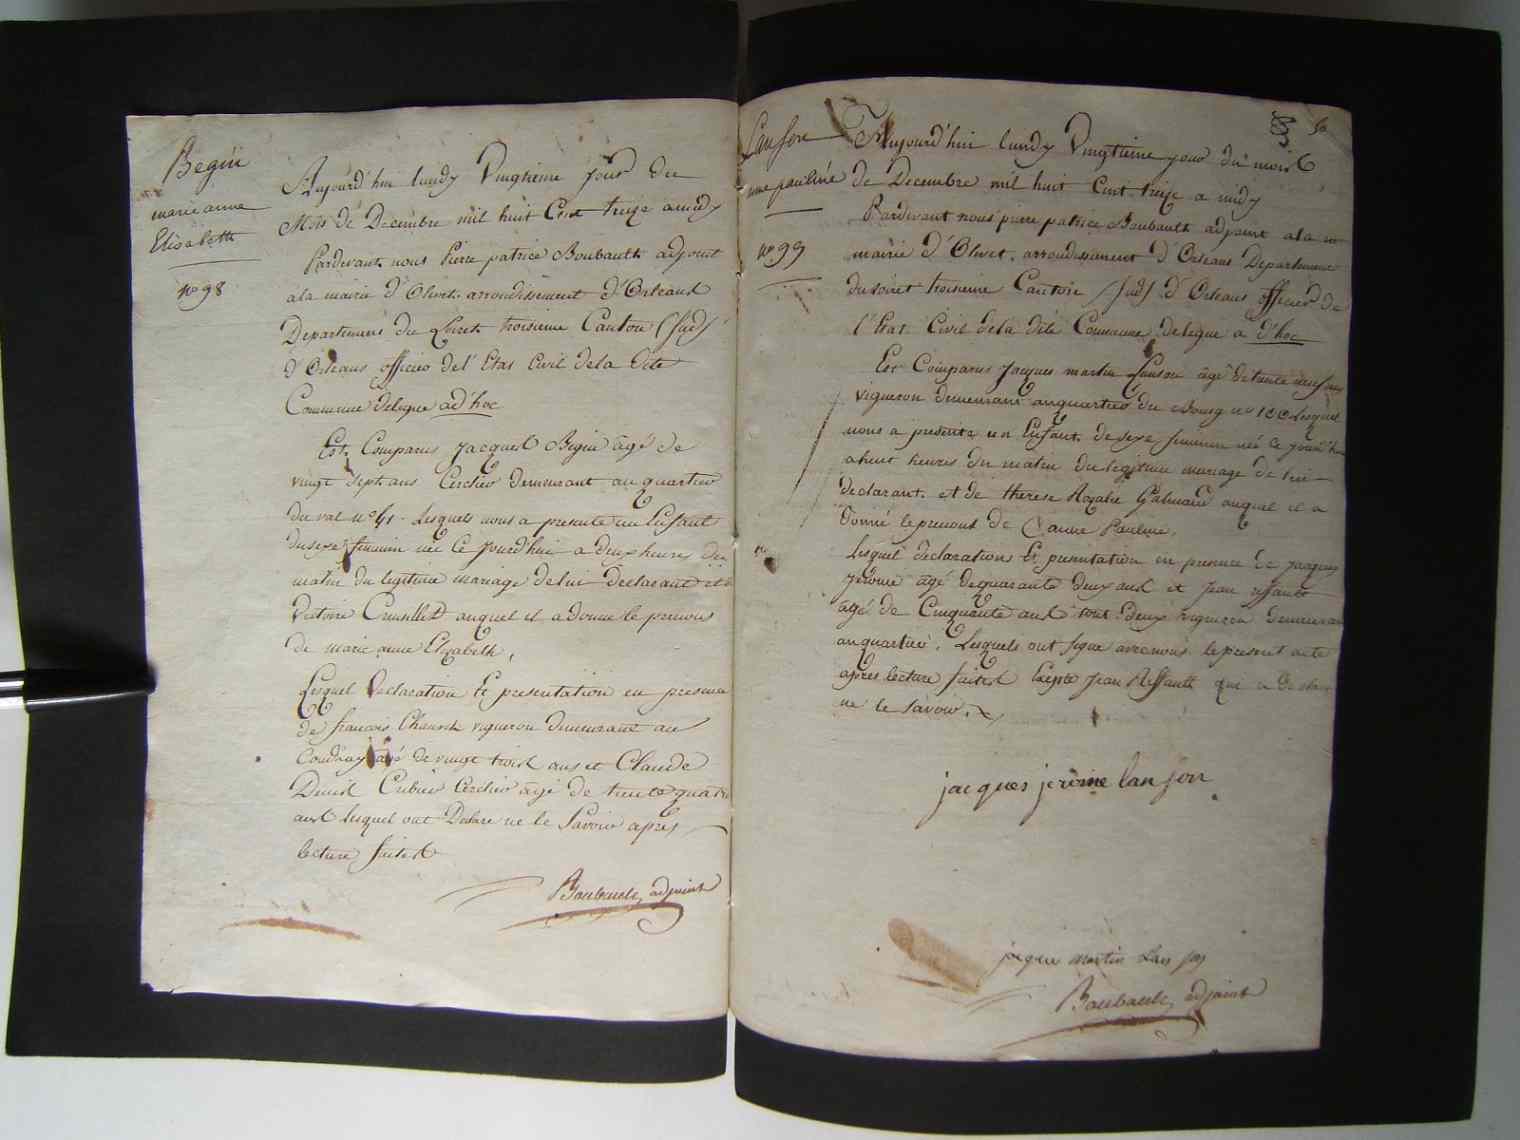 Begin
marie anne
Elisabeth
n° 98
Aujourd'hui lundy Vingtieme jour du
Mois de Decembre mil huit Cent treize a midy
Pardevant nous Pierre patrice Boubault adjoint
a la mairie d'Olivet arrondissement d'Orleans
Departement du Loiret troisieme Canton (sud)
d'Orleans officier de l'Etat Civil de la dite
Commune delegue ad'hoc
Est Comparus Jacques Begin âgé de
vingt Sept ans Cerclier demeurant au quartier
du val n° 41 Lesquels nous a presenté un Enfant
du sexe feminin née Ce jourd'hui a deux heures du
matin du legitime mariage de lui Declarant et de
Victoire auquel il a donné le prenoms
de marie anne Elizabeth,
Lesquel Declaration Et presentation en presence
de françois vigneron demeurant au
Coudray agé de vingt trois ans et Claude
Denis Cerclier âgé de trente quatre
ans lesquel ont Declaré ne le Savoir apres
lecture faites
Boubault adjoint
50
Lanson
anne pauline
n° 99
Aujourd'hui lundy Vingtieme jour du mois
de Decembre mil huit Cent treize a midy
Pardevant nous pierre patrice Boubault adjoint a la
mairie d'Olivet, arrondissement d'Orleans Departement
du Loiret troisieme Canton (sud) d'Orleans officier de
l'Etat Civil de la dite Commune delegue a d'hoc
Est Comparus Jacques martin Lanson âgé de trente neuf ans
vigneron demeurant au quartier du Bourg n° 100 Lesquel
nous a presenté un Enfant de sexe feminin née Ce jourd'hui
a huit heures du matin du legitime mariage de lui
declarant et de therese Rozalie Galmard auquel il a
donné le prenoms de anne Pauline,
Lesquel declaration Et presentation en presence de jacques
jerome âgé de quarante deux ans et Jean Assault
âgé de Cinquante ans tout deux vigneron demeurant
au quartier, Lesquels ont signé avec nous le present acte
apres lecture faites Exepté Jean Assault qui a declaré
ne le savoir.
jacques jerome lanson
jaque martin Lanson
Boubault adjoint